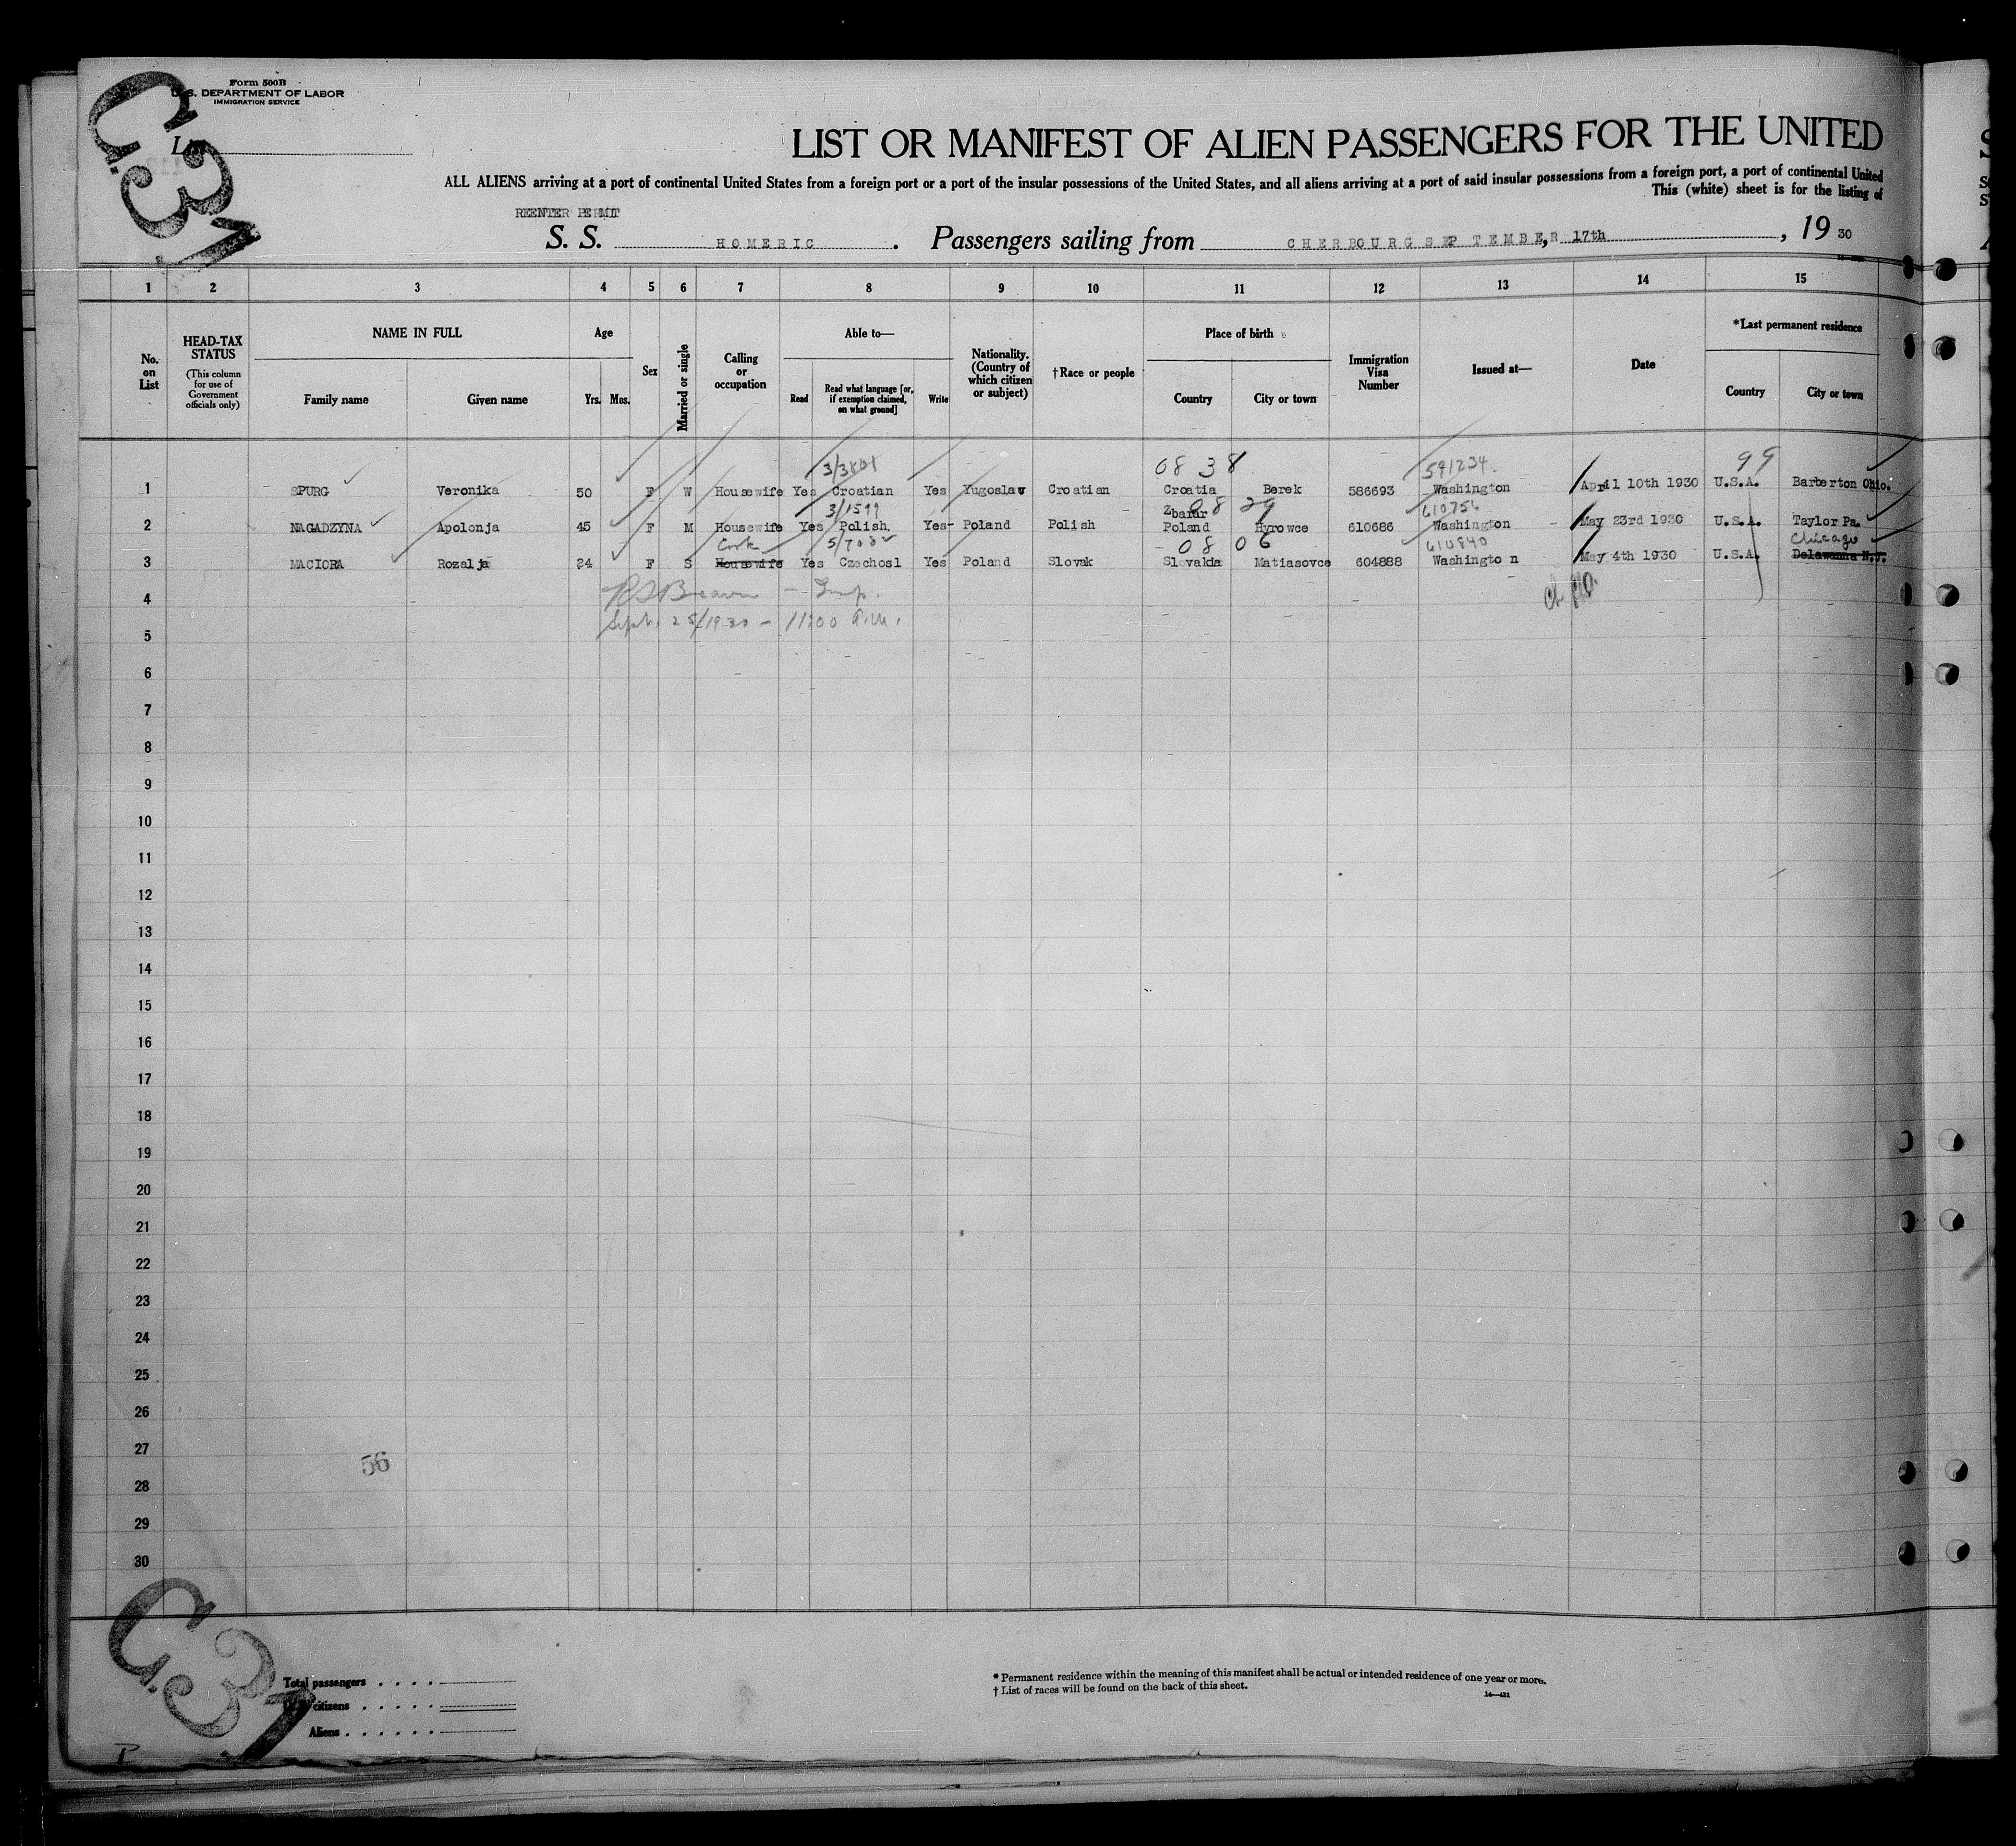 Form 500B
U. S. DEPARTMENT OF LABOR
IMMIGRATION SERVICE
C.37
List
LIST OR MANIFEST OF ALIEN PASSENGERS FOR THE UNITED
ALL ALIENS arriving at a port of continental United States from a foreign port or a port of the insular possessions of the United States, and all aliens arriving at a port of said insular possessions from a foreign port, a port of continental United
This (white) sheet is for the listing of
REENTER PERMIT
S. S. HOMERIC. Passengers sailing from CHERBOURG SEPTEMBER, 17th, 19 30
1 2 3 4 5 6 7 8 9 10 11 12 13 14 15
No. on List
HEAD-TAX STATUS
(This column for use of Government officials only)
NAME IN FULL
Family name Given name
Age
Yrs. Mos.
Sex
Married or single
Calling or occupation
Able to—
Read Read what language [or, if exemption claimed, on what ground] Write
Nationality. (Country of which citizen or subject)
†Race or people
Place of birth
Country City or town
Immigration Visa Number
Issued at—
Date
*Last permanent residence
Country City or town
08 38 591234 99
1 SPURG Veronika 50 F W Housewife Yes Croatian Yes Yugoslav Croatian Croatia Berek 586693 Washington April 10th 1930 U.S.A. Barberton Ohio.
3/1599 Zbarar 08 29 610756
2 NAGADZYNA Apolonja 45 F M Housewife Yes Polish. Yes- Poland Polish Poland Hyrowce 610686 Washington May 23rd 1930 U.S.A. Taylor Pa.
Cook 08 06 610840 Chicago
3 MACIORA Rozalja 24 F S Housewife Yes Czechosl Yes Poland Slovak Slovakia Matiasovce 604888 Washington May 4th 1930 U.S.A. Delawanna N.J.
4
Sept. 25/1930 - 11:00 a.m.
5
6
7
8
9
10
11
12
13
14
15
16
17
18
19
20
21
22
23
24
25
26
27
56
28
29
30
C.37
Total passengers
citizens
Aliens
* Permanent residence within the meaning of this manifest shall be actual or intended residence of one year or more.
† List of races will be found on the back of this sheet.
P